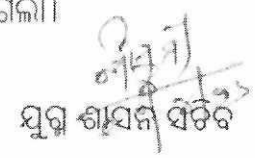 ଗଲା।
ଯୁଗ୍ମ ଶାସନ ସଚିବ